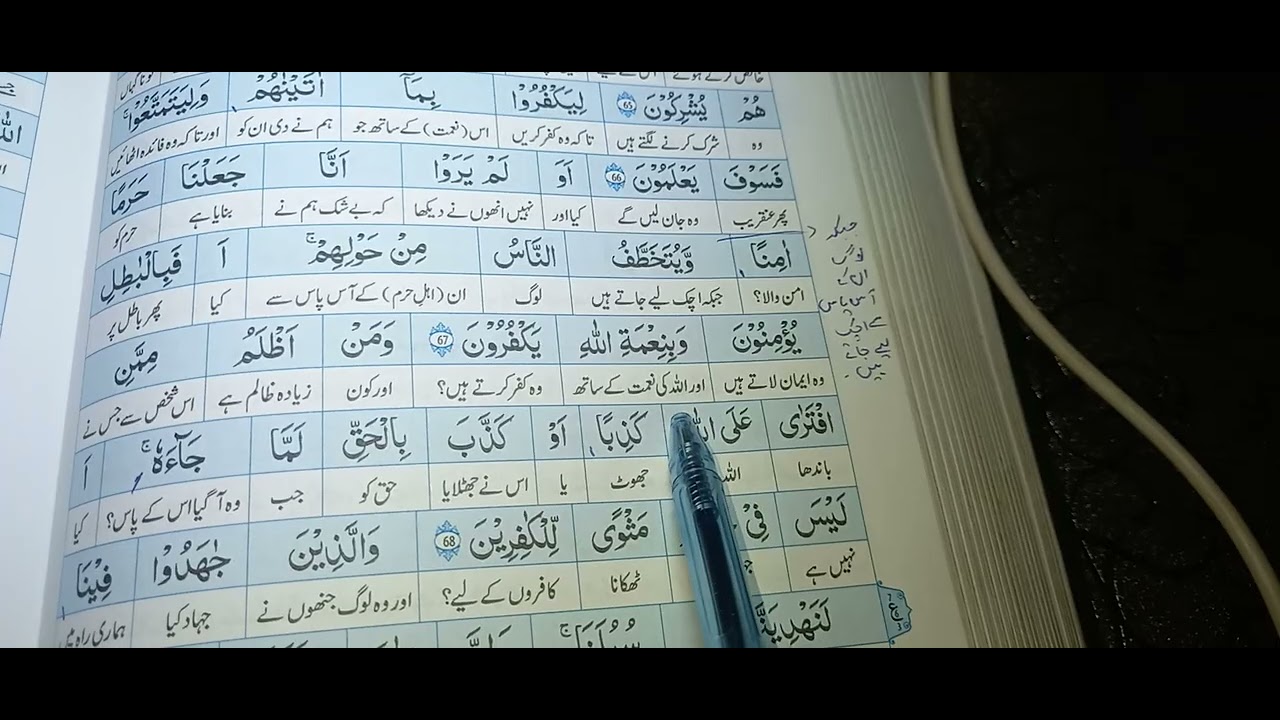 هُمْ يُشْرِكُوْنَ 65 لِيَكْفُرُوْا بِمَاۤ اٰتَيْنٰهُمْ وَلِيَتَمَتَّعُوْا
وہ شرک کرنے لگتے ہیں تاکہ وہ کفر کریں اس (نعمت) کے ساتھ جو ہم نے دی ان کو اور تاکہ وہ فائدہ اٹھائیں
فَسَوْفَ يَعْلَمُوْنَ 66 اَوَ لَمْ يَرَوْا اَنَّا جَعَلْنَا حَرَمًا
پھر عنقریب وہ جان لیں گے کیا اور نہیں انھوں نے دیکھا کہ بے شک ہم نے بنایا ہے حرم کو
اٰمِنًا وَّيُتَخَطَّفُ النَّاسُ مِنْ حَوْلِهِمْ اَ فَبِالْبَاطِلِ
امن والا؟ جبکہ اچک لیے جاتے ہیں لوگ ان (اہلِ حرم) کے آس پاس سے کیا پھر باطل پر
يُؤْمِنُوْنَ وَبِنِعْمَةِ اللّٰهِ يَكْفُرُوْنَ 67 وَمَنْ اَظْلَمُ مِمَّنِ
وہ ایمان لاتے ہیں اور اللہ کی نعمت کے ساتھ وہ کفر کرتے ہیں؟ اور کون زیادہ ظالم ہے اس شخص سے جس نے
افْتَرٰى عَلَى كَذِبًا اَوْ كَذَّبَ بِالْحَقِّ لَمَّا جَآءَهٗ اَ
باندھا جھوٹ یا اس نے جھٹلایا حق کو جب وہ آگیا اس کے پاس؟ کیا
لَيْسَ فِيْ مَثْوًى لِّلْكٰفِرِيْنَ 68 وَالَّذِيْنَ جٰهَدُوْا فِيْنَا
نہیں ہے ٹھکانا کافروں کے لیے؟ اور وہ لوگ جنھوں نے جہاد کیا ہماری راہ میں
لَنَهْدِيَنَّ
جبکہ
لوگ
ان کے
آس پاس
سے اچک
لیے جاتے
ہیں۔